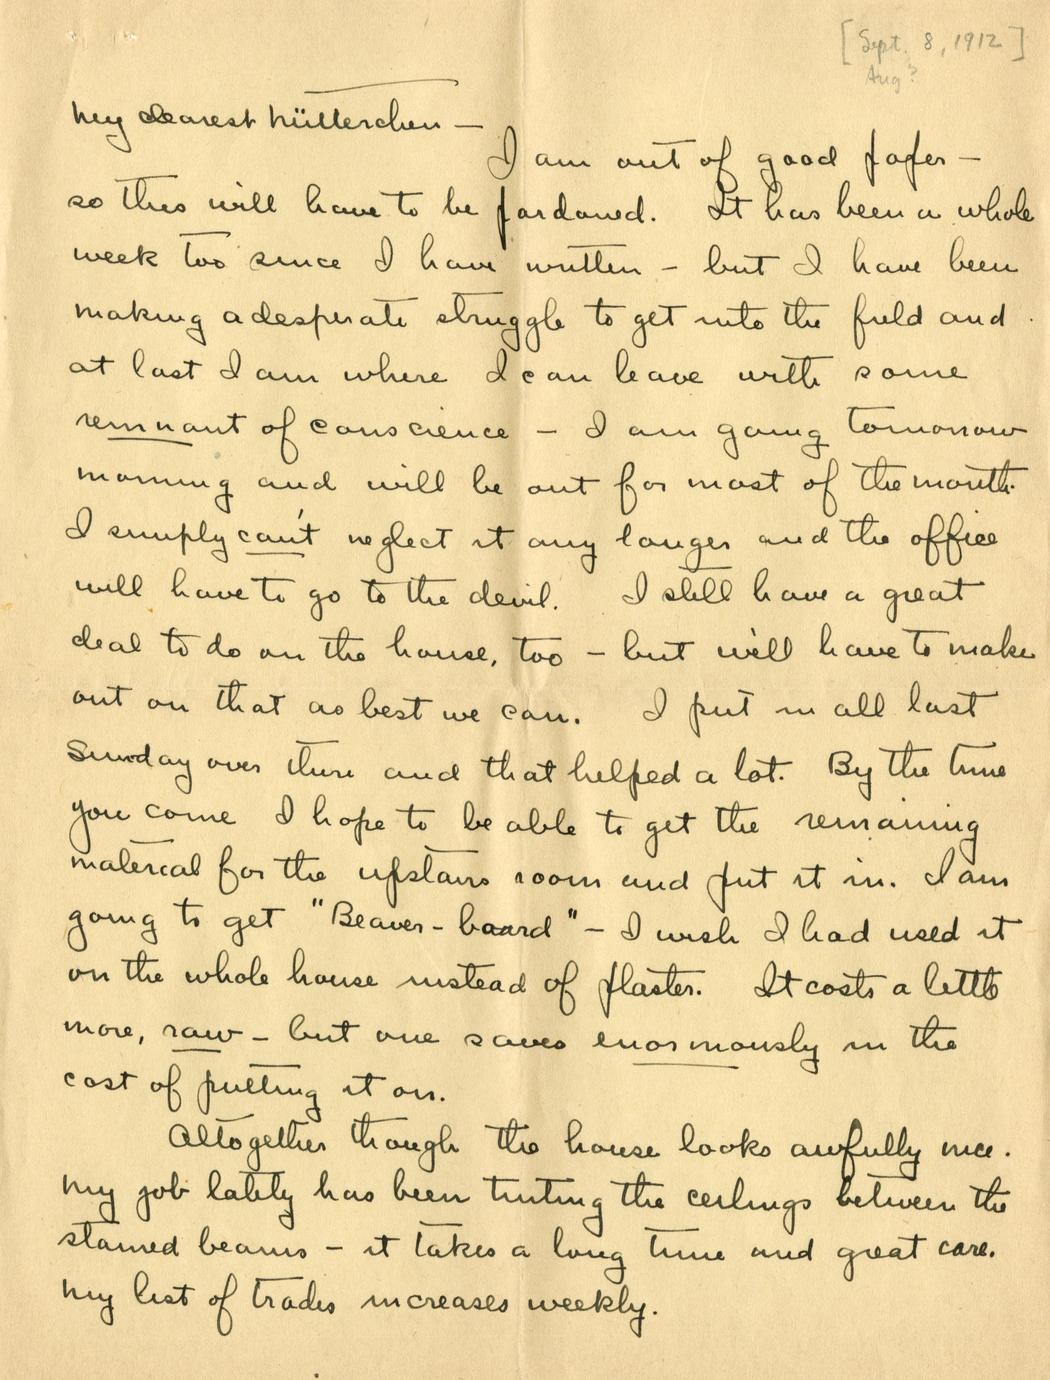 [Sept. 8, 1912]
Aug?
My dearest Mütterchen —
I am out of good paper —
so this will have to be pardoned. It has been a whole
week too since I have written – but I have been
making a desperate struggle to get into the field and
at last I am where I can leave with some
remnant of conscience – I am going tomorrow
morning and will be out for most of the month.
I simply can't neglect it any longer and the office
will have to go to the devil. I still have a great
deal to do on the house, too – but we'll have to make
out on that as best we can. I put in all last
Sunday over there and that helped a lot. By the time
you come I hope to be able to get the remaining
material for the upstairs room and put it in. I am
going to get "Beaver-board" – I wish I had used it
on the whole house instead of plaster. It costs a little
more, raw – but one saves enormously in the
cost of putting it on.
Altogether though the house looks awfully nice.
My job lately has been tinting the ceilings between the
stained beams – it takes a long time and great care.
My list of trades increases weekly.